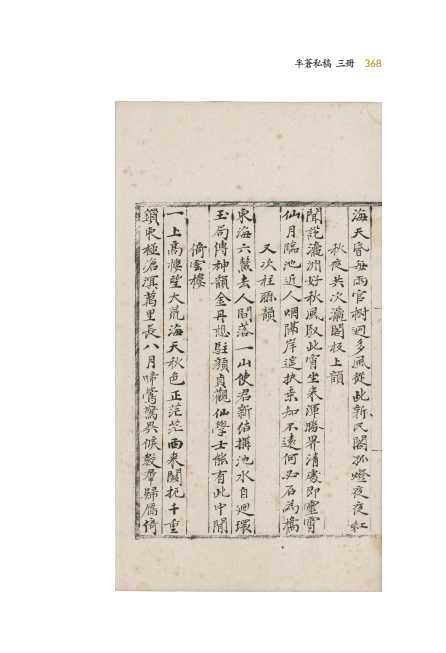 半蒼私稿 三冊 368
海天昏每雨官樹迥多風從此新民閣孤燈夜夜紅
秋夜共次瀛閣板上韻
聞說瀛洲好秋風臥此宵坐來渾勝界清處即靈霄
仙月臨池近人烟隔岸遙扶桑知不遠何必石為橋
又次柱聯韻
東海六鰲去人間落一山使君新結搆池水自迴環
玉局傳神韻金丹想駐顏貞觀仙學士能有此中閒
倚雲樓
一上高樓望大荒海天秋色正茫茫雨來關把千重
鎖東極滄溟萬里長八月啼鶯驚異候數羣歸雁倚